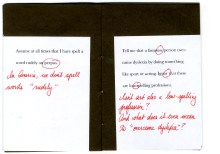 Assume at all times that I have spelt a
word rudely on purpose.
In America, we don't spell
words "rudely"
Tell me that a famous person over-
came dyslexia by doing something
like sport or acting,
that there
are
spelling professions.
Isn't art also a low-spelling
profession?
And what does it even mean
to "overcome dyslexia"?